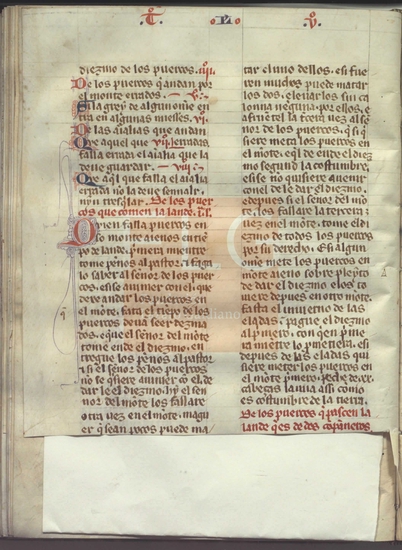 T. L. V.
diezmo de los puercos. iiij.
De los puercos q̃ andan por
el monte errados. v.
Si la grey de algun ome en
tra en algunas miesses. vi.
De las aĩalias que andan
Que aquel que vii. erradas.
falla errada el aĩalia que la
deue guardar. viij.
Que aq̃l que falla el aĩalia
errada no la deue sennalr.
nin tresq̃lar. De los puer
cos que comen la lande.
Quien falla puercos en
so monte arenos en tiẽ
po de lande, p̃mera mientre
tome pẽnos al pastor, τ faga
lo saber al señor de los puer
cos, e si se auinier con el que
deue andar los puercos en
el mõte, fata el tiẽpo de los
puercos deuẽ seer dezma
dos, e que el señor del mõte
tome ende el diezmo, en
tregue los pẽnos al pastor
τ si el señor de los puercos
no se q̃siere auinier cõ el, de
dar le el diezmo, by el sen
nor del mõte los fallare
otra uez en el mõte, magu
er q̃ sean pocos puede ma
tar el uno dellos, e si fue
ren muchos puede matar
los dos, e leuar los sin ca
lonna neguna por ellos, e
a fruẽ la tercera uez al se
nor de los puercos, q̃ si q̃
siere meta los puercos en
el mõte, e q̃l de ende el diez
mo segund la costumbre,
e si ese no quisiere auenir
con el de dar el diezmo,
e depues si el señor del mõ
te, los fallare la tercera
uez en el mõte, tome el die
zmo de todos los puercos
por su derecho. E si algun
ome mete los puercos en
mõte areno sobre pleyto
de dar el diezmo e los to
uiere depues en otro mõte,
fasta el inuierno de las
eladas, pague el diezmo
al p̃mero, con qen p̃mie
ra mietre lo pmetiera, e si
depues de las eladas q̃
siere meter los puercos en
el mõte p̃mero, peche de xx.
cabeças la una assi como
es costumbre de la tierra.
De los puercos q̃ pascen la
lande q̃ es de dos cõpañeros